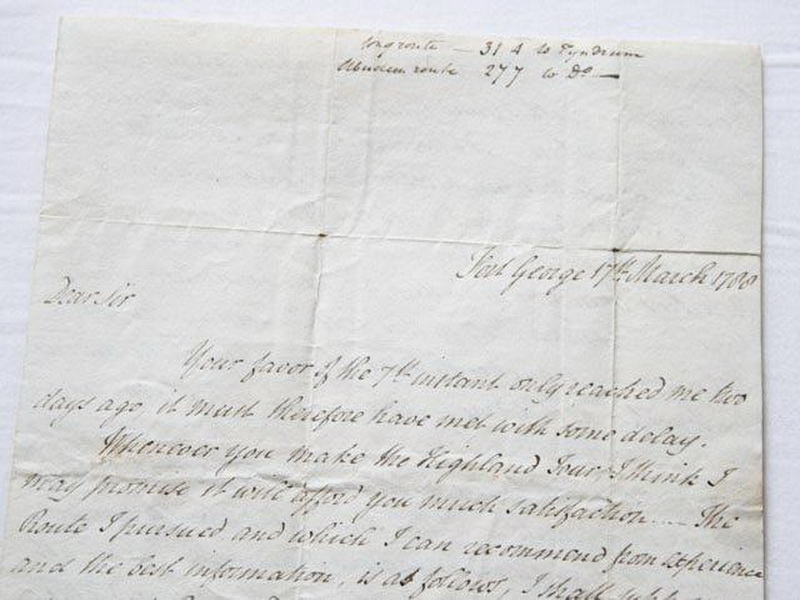 Long route — 314 to Tyndrum
Aberdeen route 277 to Do —
Fort George 17th March 1788
Dear Sir
Your favor of the 7th instant only reached me two
days ago, it must therefore have met with some delay.
Whenever you make the Highland Tour, I think I
may promise it will afford you much satisfaction.... The
Route I pursued and which I can recommend from experience
and the best information, is as follows, I shall